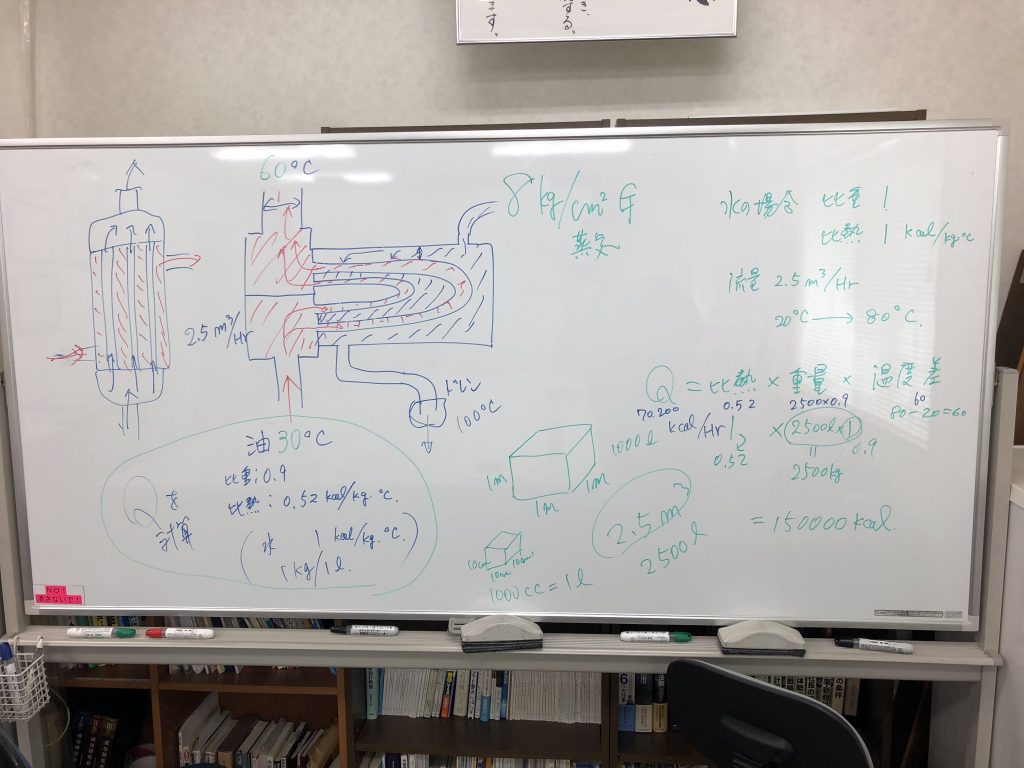 き、
する。
ます。
60°C
8 kg/cm² G
蒸気
水の場合 比重 1
比熱 1 kcal/kg°C
流量 2.5 m³/Hr
20°C → 80°C.
2.5 m³/Hr
ドレン
100°C
Q = 比熱 × 重量 × 温度差
70.200 0.52 2500×0.9 60
80-20=60
kcal/Hr 1 × 2500l×1
0.52 0.9
2500kg
= 150000 kcal.
油 30°C
比重: 0.9
比熱: 0.52 kcal/kg.°C.
Qを
計算
(水 1 kcal/kg.°C.)
1 kg/1l.
1000l
1m 1m
1m
2.5 m³
2500l
10cm 10cm
10cm
1000cc=1l
NO!
消さないで!